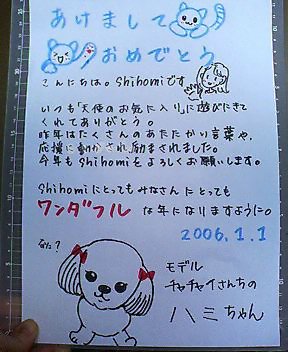 あけまして
おめでとう
こんにちは。Shihomiです
いつも「天使のお気に入り」に遊びにきて
くれてありがとう。
昨年はたくさんのあたたかい言葉や、
応援に動かされ励まされました。
今年もShihomiをよろしくお願いします。
Shihomiにとってもみなさんにとっても
ワンダフル な年になりますように。
2006.1.1
モデル
チャチャイさんちの
ハミちゃん